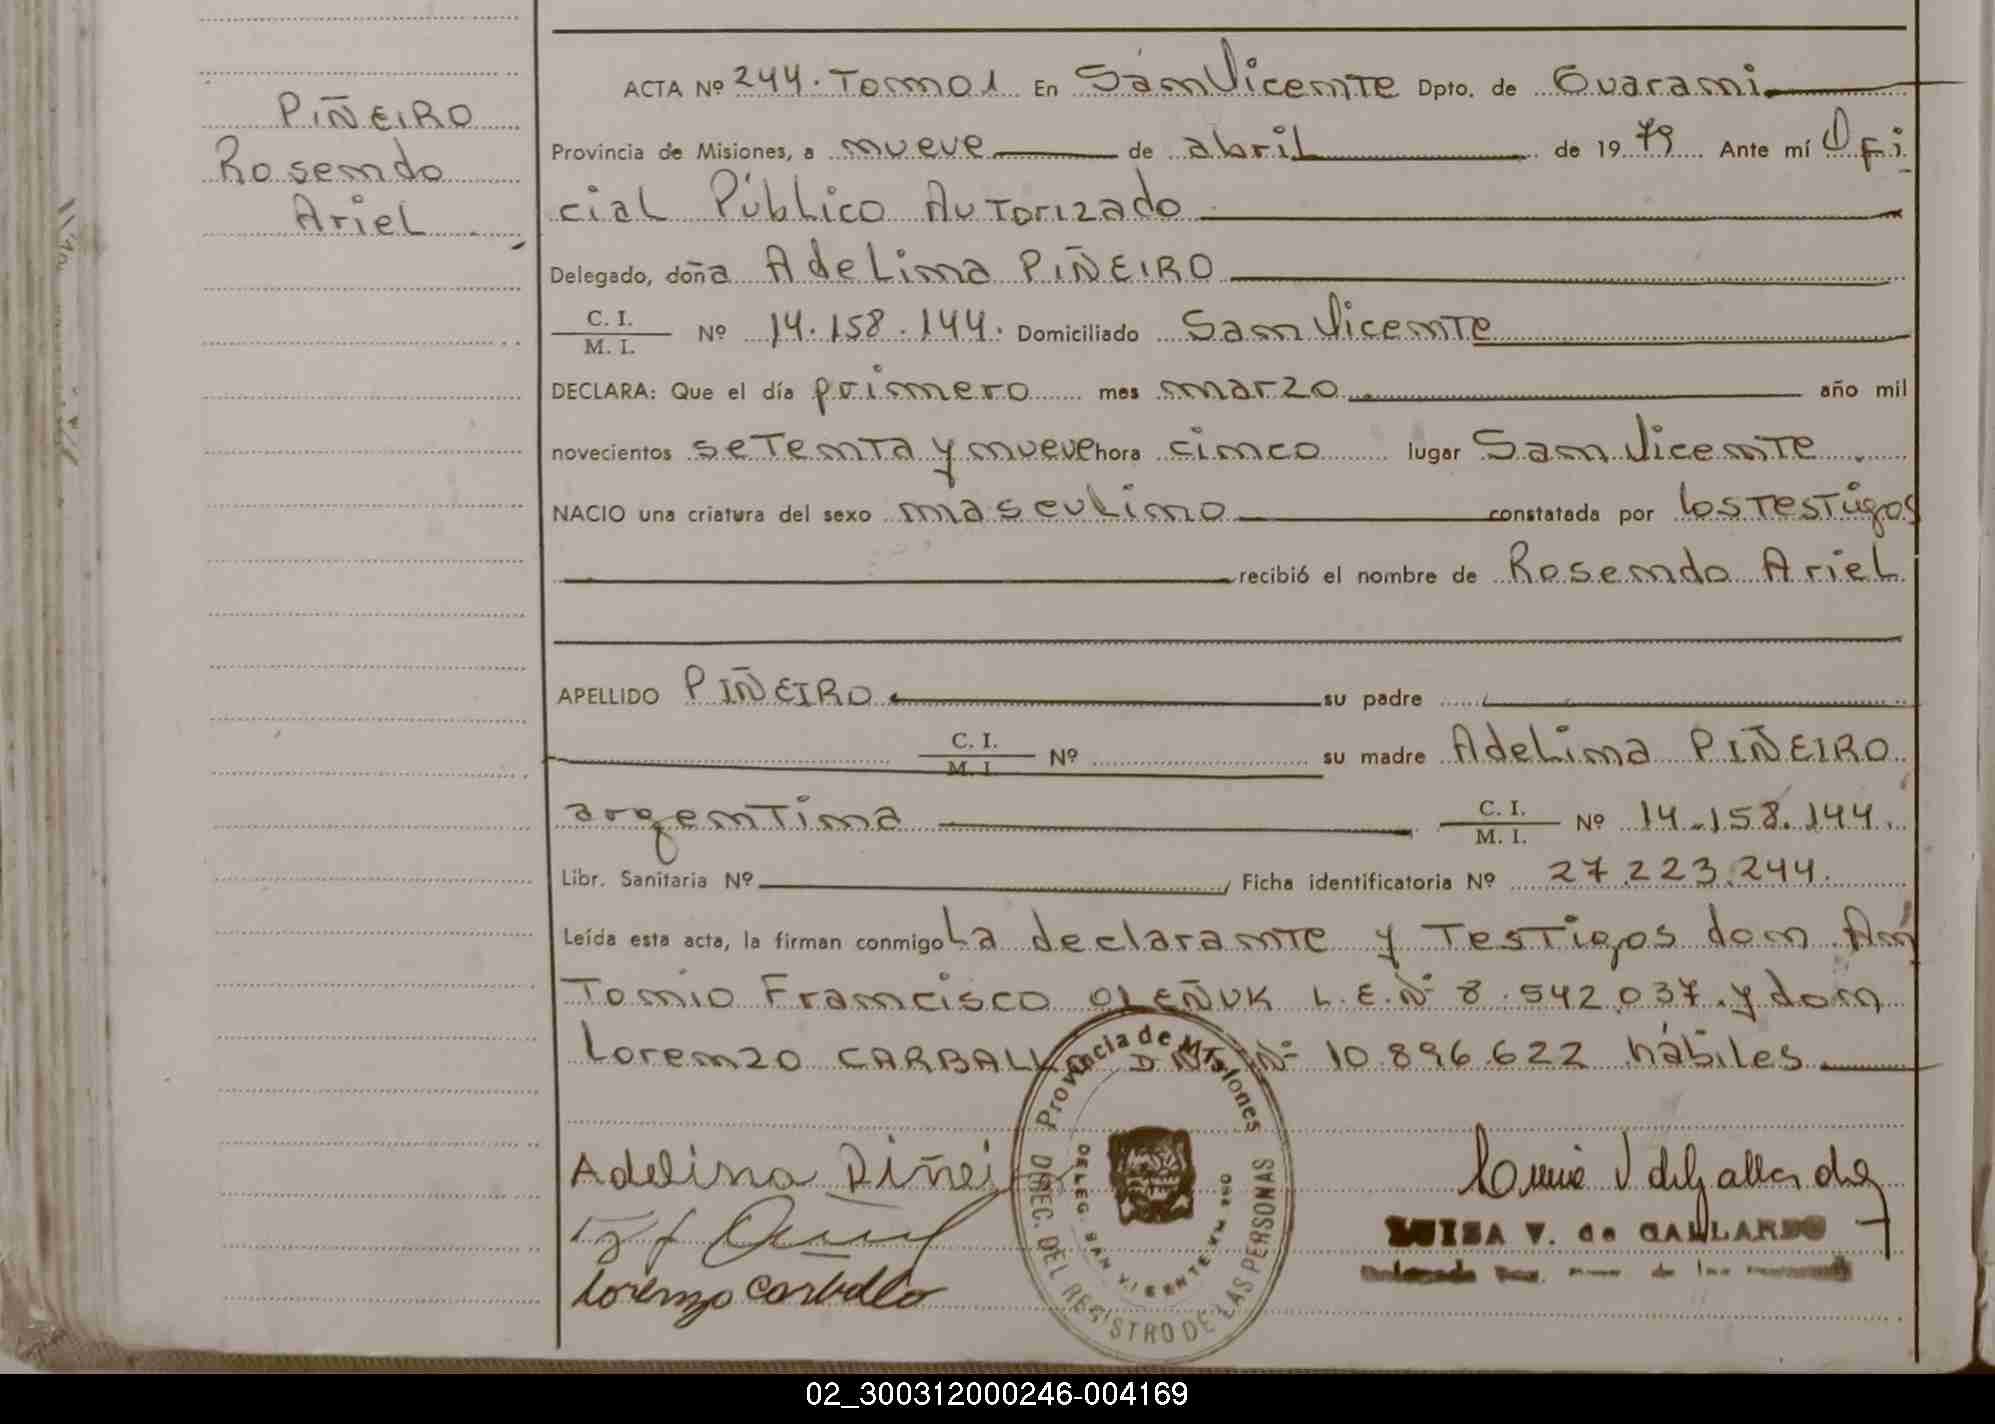 PIÑEIRO
Rosendo
Ariel
ACTA Nº 244. Tomo 1 En San Vicente Dpto. de Guarani
Provincia de Misiones, a nueve de abril de 1979 Ante mí Ofi
cial Público Autorizado
Delegado, doña Adelina PIÑEIRO
C. I.
M. I. Nº 14.158.144. Domiciliado San Vicente
DECLARA: Que el día primero mes marzo año mil
novecientos setenta y nueve hora cinco lugar San Vicente
NACIO una criatura del sexo masculino constatada por los testigos
recibió el nombre de Rosendo Ariel
APELLIDO PIÑEIRO su padre
C. I.
M. I. Nº su madre Adelina PIÑEIRO
argentina C. I.
M. I. Nº 14.158.144.
Libr. Sanitaria Nº Ficha identificatoria Nº 27.223.244.
Leída esta acta, la firman conmigo la declarante y Testigos don An
Tonio Francisco OLEÑUK L.E.Nº 8.542.037. y don
Lorenzo CARBALLO D.N.I. Nº 10.896.622 hábiles
Adelina Piñei
Lorenzo Carballo
Provincia de Misiones
DIREC. DEL REGISTRO DE LAS PERSONAS
DELEG. SAN VICENTE
LUISA V. de GALLARDO
02_300312000246-004169